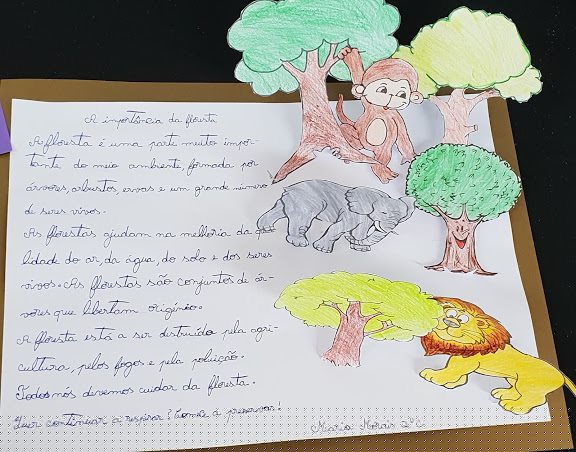 A importância da floresta
A floresta é uma parte muito impor-
tante do meio ambiente, formada por
árvores, arbustos, ervas e um grande número
de seres vivos.
As florestas ajudam na melhoria da qua-
lidade do ar, da água, do solo e dos seres
vivos. As florestas são conjuntos de ár-
vores que libertam oxigénio.
A floresta está a ser destruída pela agri-
cultura, pelos fogos e pela poluição.
Todos nós devemos cuidar da floresta.
Quer continuar a respirar? Comece a preservar!
Maria Morais 2ºC